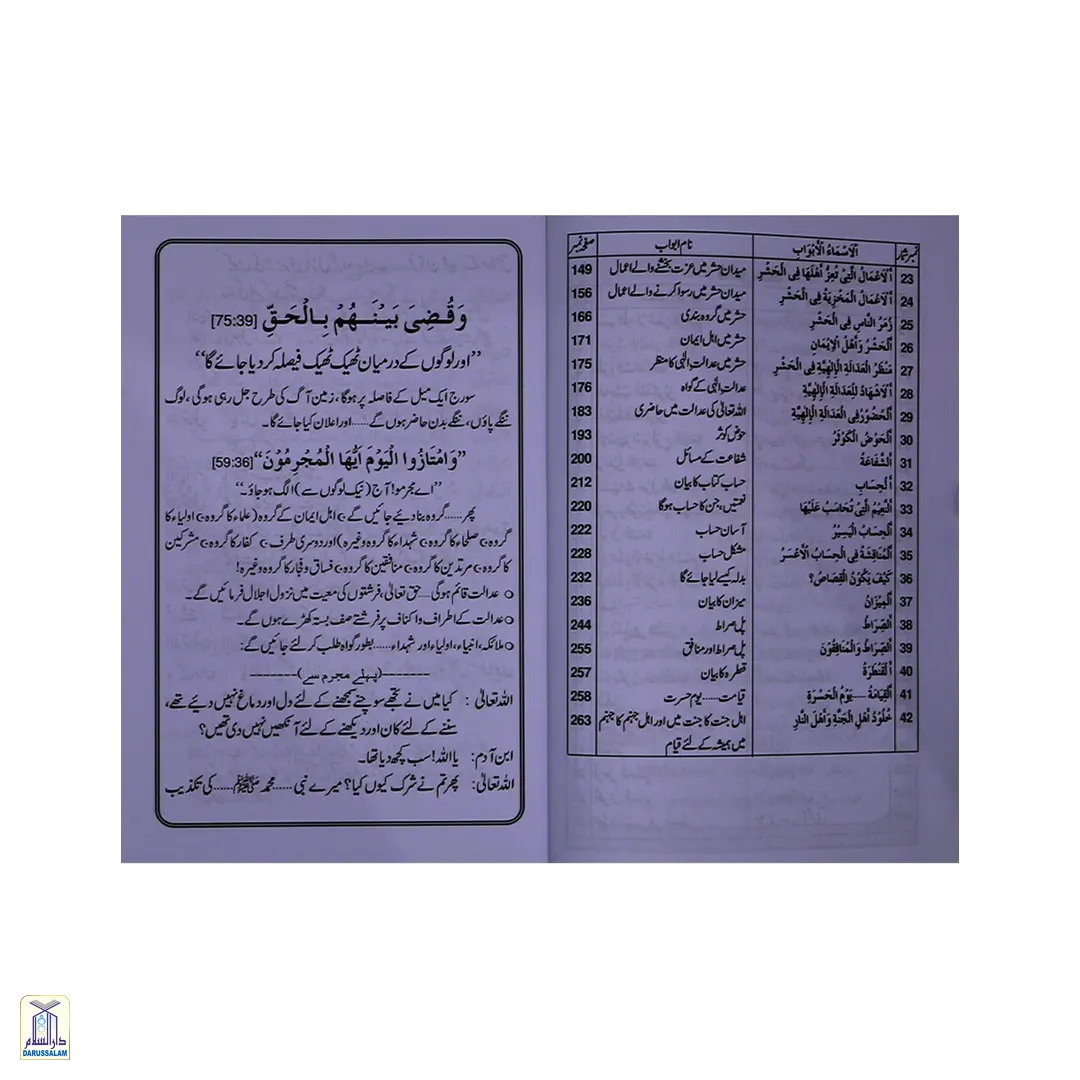 نمبر شمار اَلْاَسْمَاءُ الْاَبْوَابِ نام ابواب صفحہ نمبر
23 اَلْاَعْمَالُ الَّتِیْ تُعِزُّ اَهْلَهَا فِی الْحَشْرِ میدان حشر میں عزت بخشنے والے اعمال 149
24 اَلْاَعْمَالُ الْمَخْزِیَةُ فِی الْحَشْرِ میدان حشر میں رسوا کرنے والے اعمال 156
25 زُمَرُ النَّاسِ فِی الْحَشْرِ حشر میں گروہ بندی 166
26 اَلْحَشْرُ وَاَهْلُ الْاِیْمَانِ حشر میں اہل ایمان 171
27 مَنْظَرُ الْعَدَالَةِ الْاِلٰهِیَّةِ فِی الْحَشْرِ حشر میں عدالتِ الٰہی کا منظر 175
28 اَلْاَشْهَادُ لِلْعَدَالَةِ الْاِلٰهِیَّةِ عدالتِ الٰہی کے گواہ 176
29 اَلْحُضُوْرُ فِی الْعَدَالَةِ الْاِلٰهِیَّةِ اللہ تعالیٰ کی عدالت میں حاضری 183
30 اَلْحَوْضُ الْکَوْثَرُ حوضِ کوثر 193
31 اَلشَّفَاعَةُ شفاعت کے مسائل 200
32 اَلْحِسَابِ حساب کتاب کا بیان 212
33 اَلنَّعِیْمُ الَّتِیْ تُحَاسَبُ عَلَیْهَا نعمتیں، جن کا حساب ہوگا 220
34 اَلْحِسَابُ الْیَسِیْرُ آسان حساب 222
35 اَلْمُنَاقَشَةُ فِی الْحِسَابُ الْاَعْسَرُ مشکل حساب 228
36 کَیْفَ یَکُوْنُ الْقِصَاصُ؟ بدلہ کیسے لیا جائے گا 232
37 اَلْمِیْزَانُ میزان کا بیان 236
38 اَلصِّرَاطُ پل صراط 244
39 اَلصِّرَاطُ وَالْمُنَافِقُوْنَ پل صراط اور منافق 255
40 اَلْقَنْطَرَةُ قنطرہ کا بیان 257
41 اَلْقِیَامَةُ ..... یَوْمُ الْحَسْرَةِ قیامت ..... یوم حسرت 258
42 خُلُوْدُ اَهْلِ الْجَنَّةِ وَاَهْلِ النَّارِ اہل جنت کا جنت میں اور اہل جہنم کا جہنم 263
میں ہمیشہ کے لئے قیام
وَقُضِیَ بَیْنَهُمْ بِالْحَقِّ [75:39]
’’اور لوگوں کے درمیان ٹھیک ٹھیک فیصلہ کر دیا جائے گا‘‘
سورج ایک میل کے فاصلہ پر ہوگا، زمین آگ کی طرح جل رہی ہوگی، لوگ
ننگے پاؤں، ننگے بدن حاضر ہوں گے ...... اور اعلان کیا جائے گا۔
’’وَامْتَازُوا الْیَوْمَ اَیُّهَا الْمُجْرِمُوْنَ‘‘ [59:36]
’’اے مجرمو! آج (نیک لوگوں سے) الگ ہو جاؤ۔‘‘
پھر ...... گروہ بنا دیئے جائیں گے، اہل ایمان کے گروہ (علماء کا گروہ، اولیاء کا
گروہ، صلحاء کا گروہ، شہداء کا گروہ وغیرہ) اور دوسری طرف، کفار کا گروہ، مشرکین
کا گروہ، مرتدین کا گروہ، منافقین کا گروہ، فساق وفجار کا گروہ وغیرہ!
○ عدالت قائم ہوگی ..... حق تعالیٰ، فرشتوں کی معیت میں نزول اجلال فرمائیں گے۔
○ عدالت کے اطراف واکناف پر فرشتے صف بستہ کھڑے ہوں گے۔
○ ملائکہ، انبیاء، اولیاء اور شہداء ...... بطور گواہ طلب کر لئے جائیں گے:
-------(پہلے مجرم سے)-------
اللہ تعالیٰ : کیا میں نے تجھے سوچنے سمجھنے کے لئے دل اور دماغ نہیں دیئے تھے،
سننے کے لئے کان اور دیکھنے کے لئے آنکھیں نہیں دی تھیں؟
ابن آدم: یا اللہ! سب کچھ دیا تھا۔
اللہ تعالیٰ: پھر تم نے شرک کیوں کیا؟ میرے نبی ...... محمد ﷺ ...... کی تکذیب
دارالسلام
DARUSSALAM